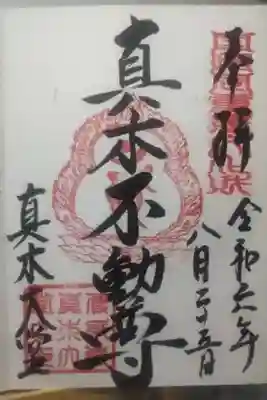 奉拝
令和六年
八月二十五日
真木不動尊
真木大堂